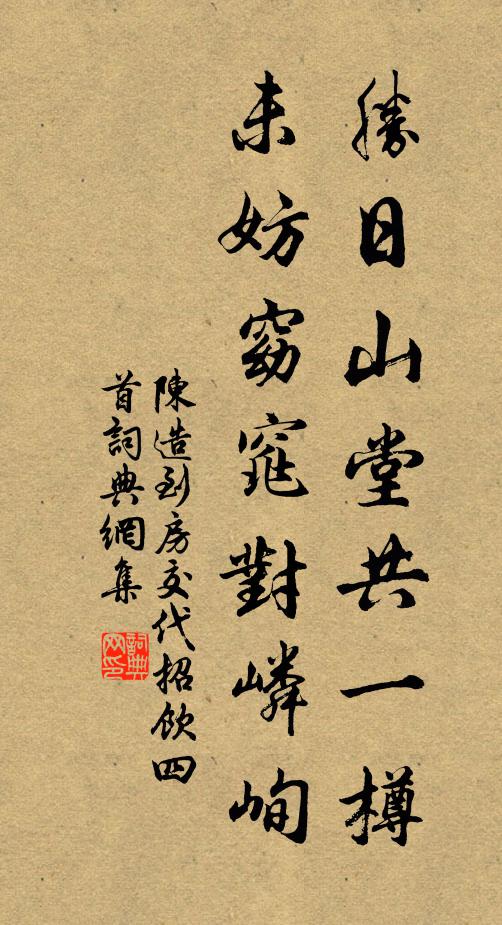 勝日山堂共一樽
未妨窈窕對嶙峋
陳造到房交代招飲四
首詞典網集
詞典网印